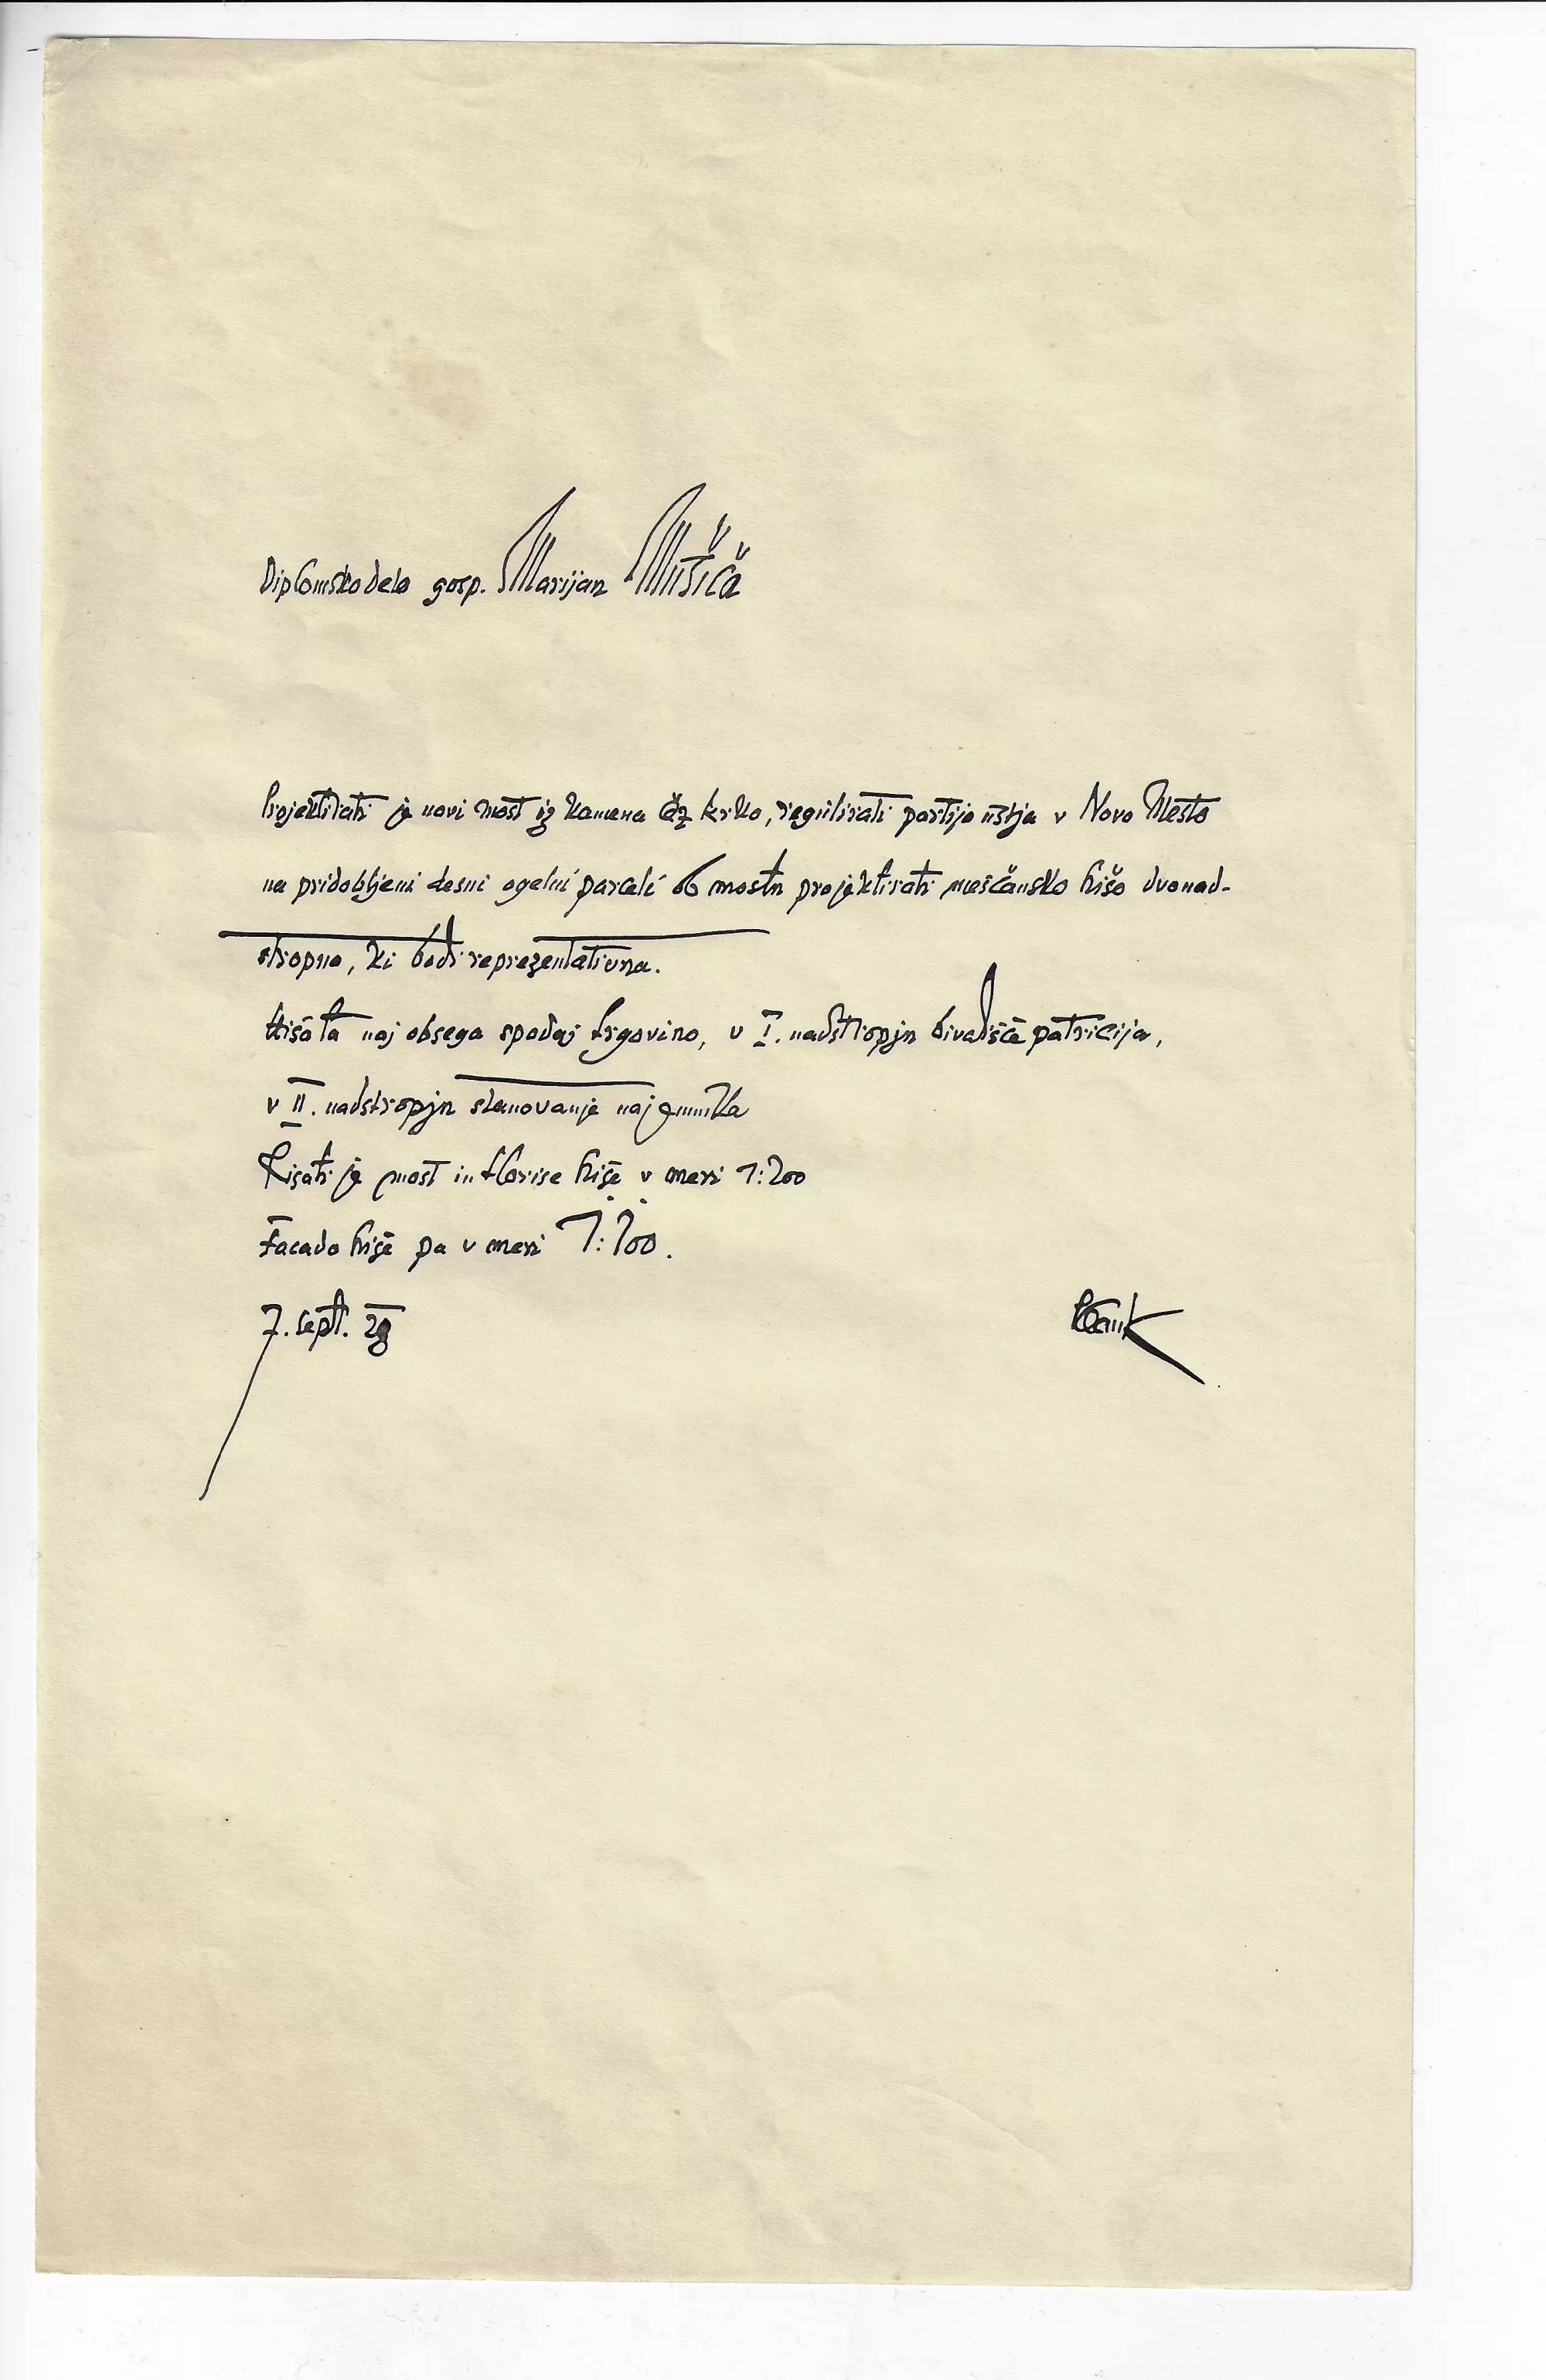 Diplomsko delo gosp. Marijan Mušiča
Projektirati je novi most iz kamena čez krko, regulirati partijo ustja v Novo Mesto
na pridobljeni desni ogelni parceli ob mostu projektirati meščansko hišo dvonad-
stropno, ki bodi reprezentativna.
Hiša ta naj obsega spodaj trgovino, v I. nadstropju bivališče patricija,
v II. nadstropju stanovanje najemnika
Risati je most in tlorise hiše v meri 1:200
Facado hiše pa v meri 1:100.
7. sept. 28